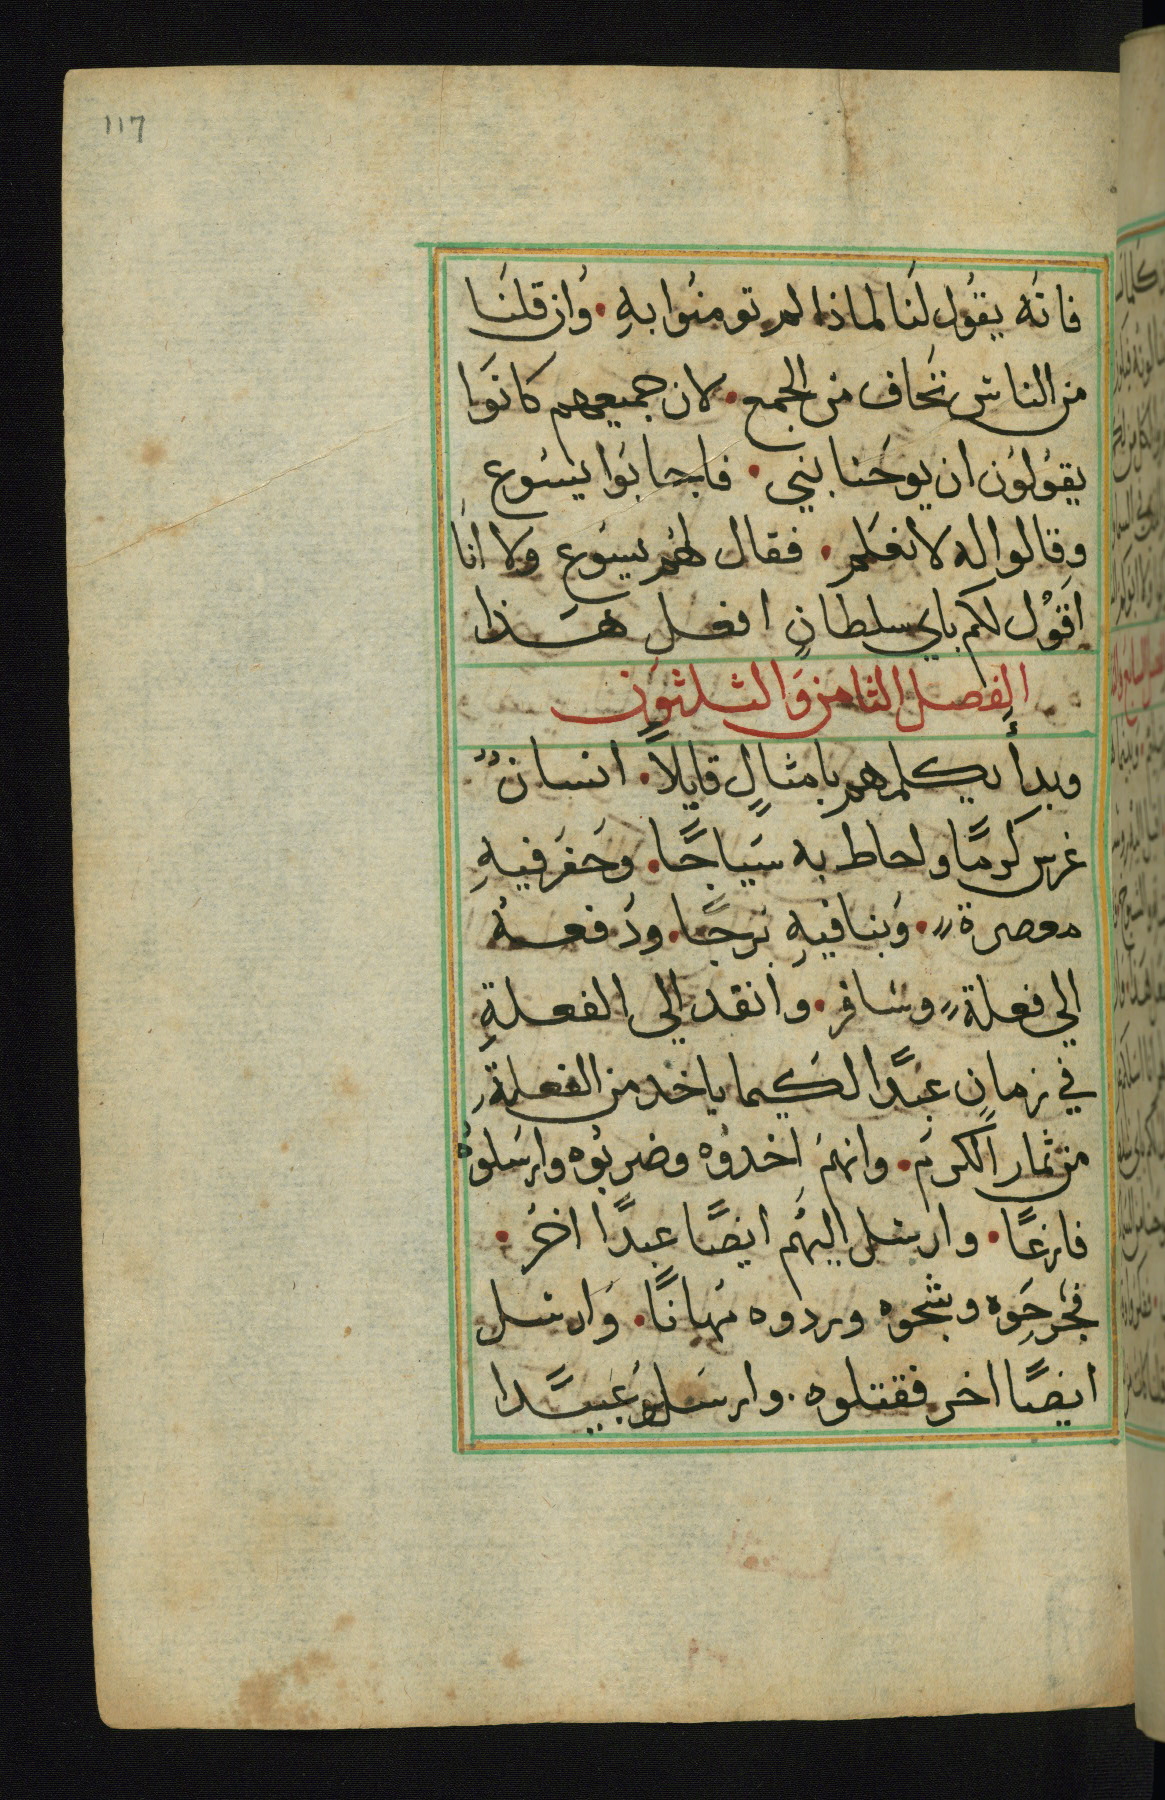 117
فانَه يقوُل لَنا لماذا لم تومنوُا بهِ • وَان قلنَا
من الناس نَخاف من الجمع • لان جميعهم كانوَا
يقوُلوُن ان يوحَنا نبي • فاجابوَا يسُوع
وقالوا له لا نعلم • فقال لهُم يسوُع ولا انَا
اَقوْل لكم باي سلطانٍ افعل هَذا
الفصل الثامن وَالثلثون
وبدأ يكلمهم بامثالٍ قايلاً • انسانٌ
غرس كرمًا واحاط به سَياجًا • وَحَفَر فيهِ
معصرةً • وَبنا فيهِ بَرجًا • ودَفعهُ
الي فعلةٍ وسافر • وَانقد الي الفعلةِ
في زمانٍ عبدًا لكيما ياخد من الفعلةِ
من ثمار الكرمِ • وانهمَ اخدوُه وضربوُه وارسَلوُه
فارغًا • وارسل اليهُم ايضًا عبدًا اخَر •
فجرحَوه وشجوه وردوه مهانًا • وَارسل
ايضًا اخر فقتلوه • وارسَل عَبيدًا